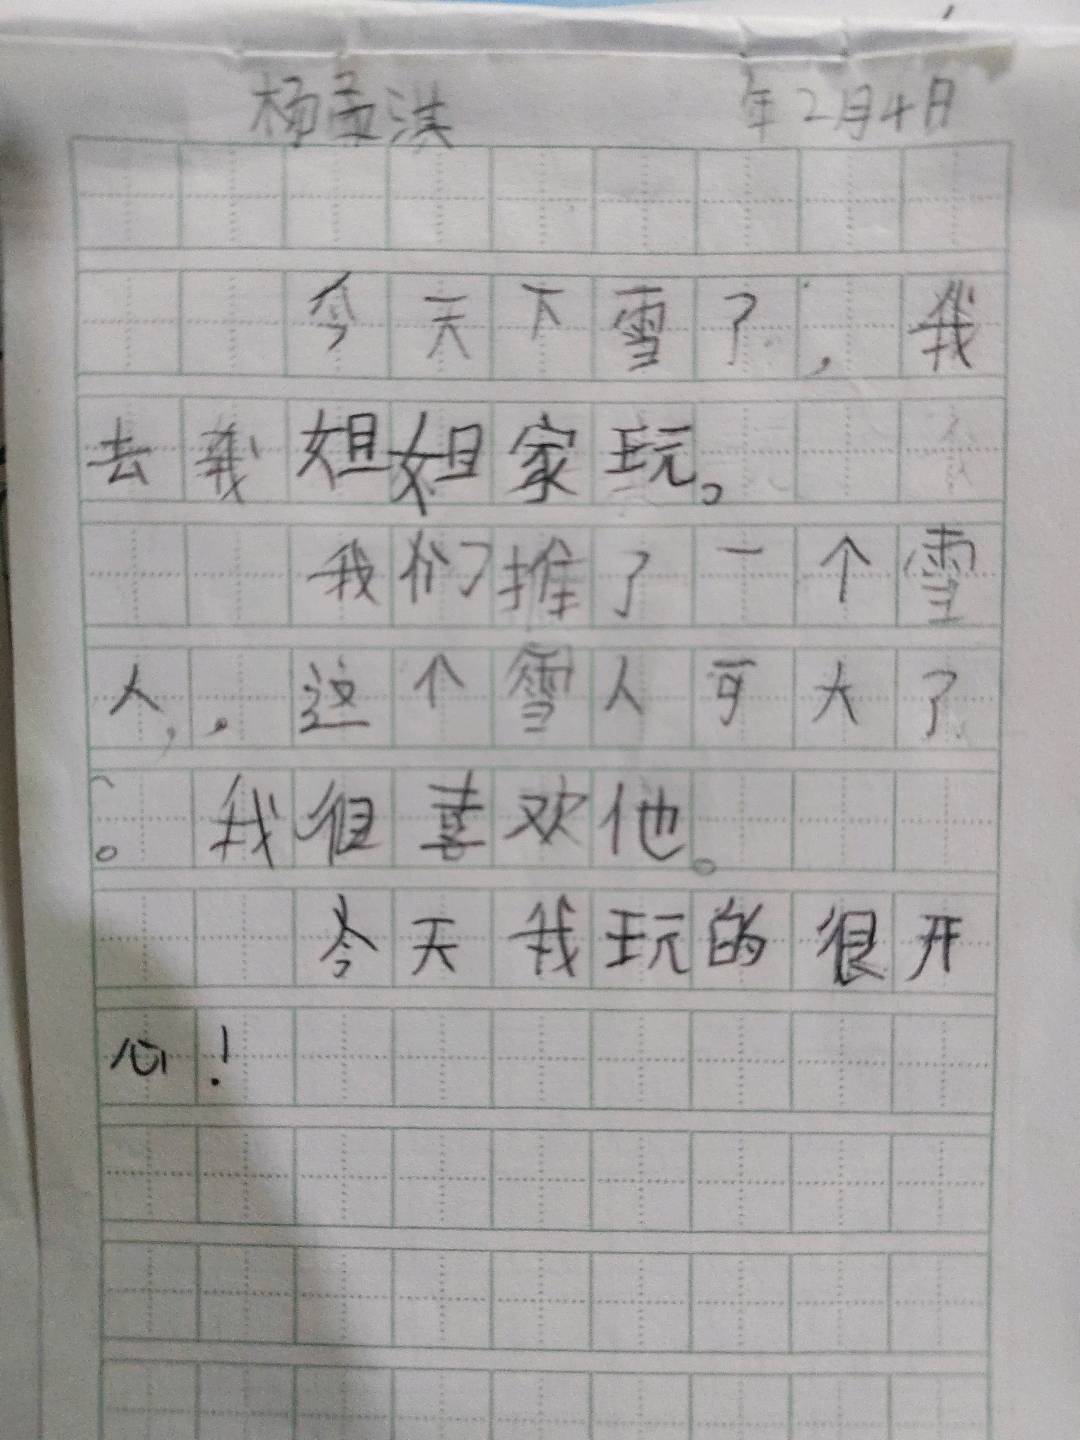 杨孟淇 年2月4日
今天下雪了,我
去我姐姐家玩。
我们推了一个雪
人,这个雪人可大了
。我很喜欢他。
今天我玩的很开
心!